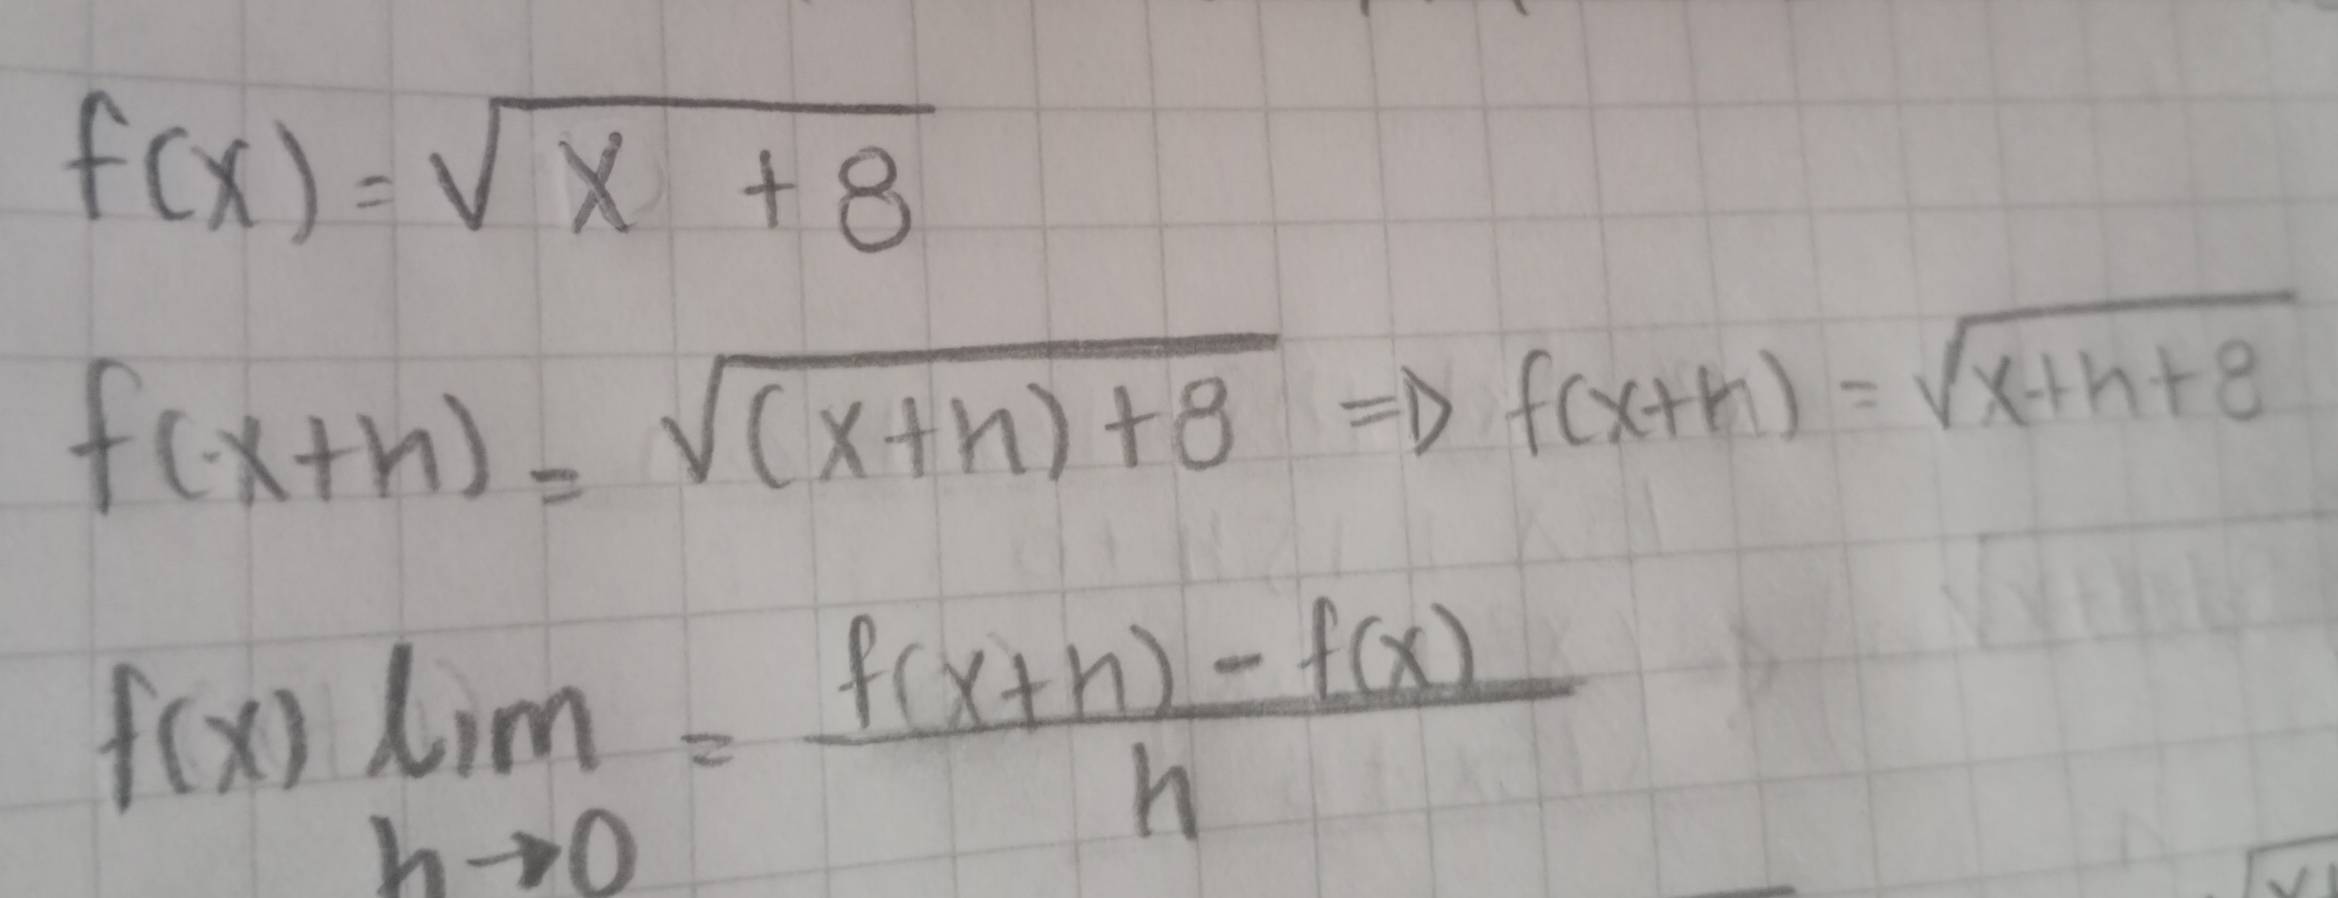 f(x) = √(x + 8)
f(x+h) = √((x+h)+8) ⇒ f(x+h) = √(x+h+8)
f(x) lim h→0 = (f(x+h) - f(x)) / h